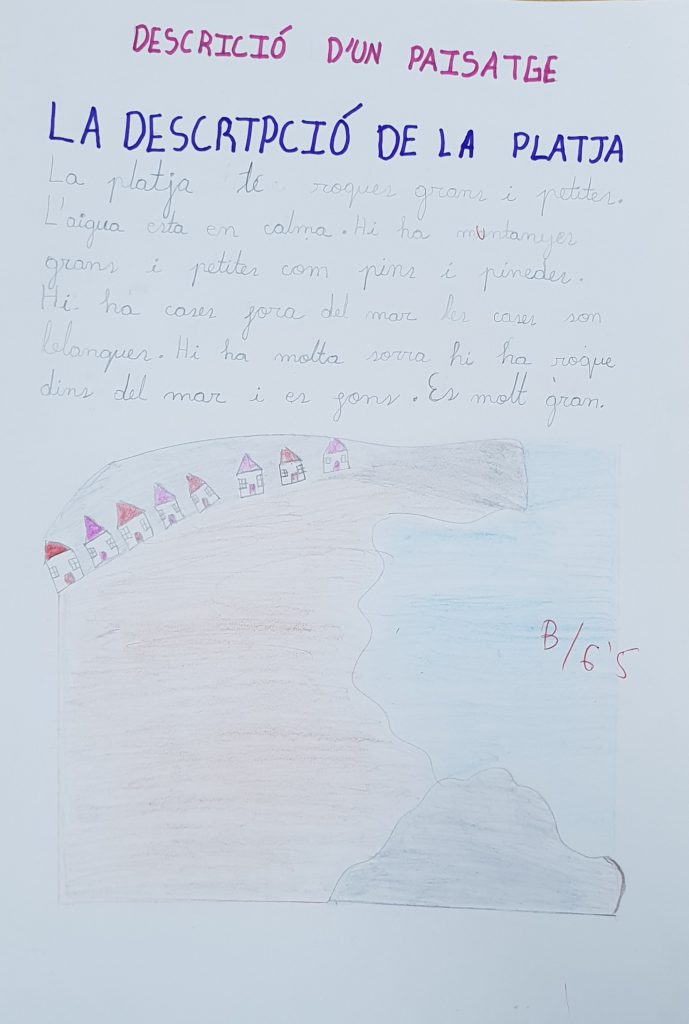 DESCRICIÓ D'UN PAISATGE
LA DESCRIPCIÓ DE LA PLATJA
La platja te roques grans i petites.
L'aigua esta en calma. Hi ha muntanyes
grans i petites com pins i pinedes.
Hi ha cases fora del mar les cases son
blanques. Hi ha molta sorra hi ha roque
dins del mar i es fons. Es molt gran.
B/6'5